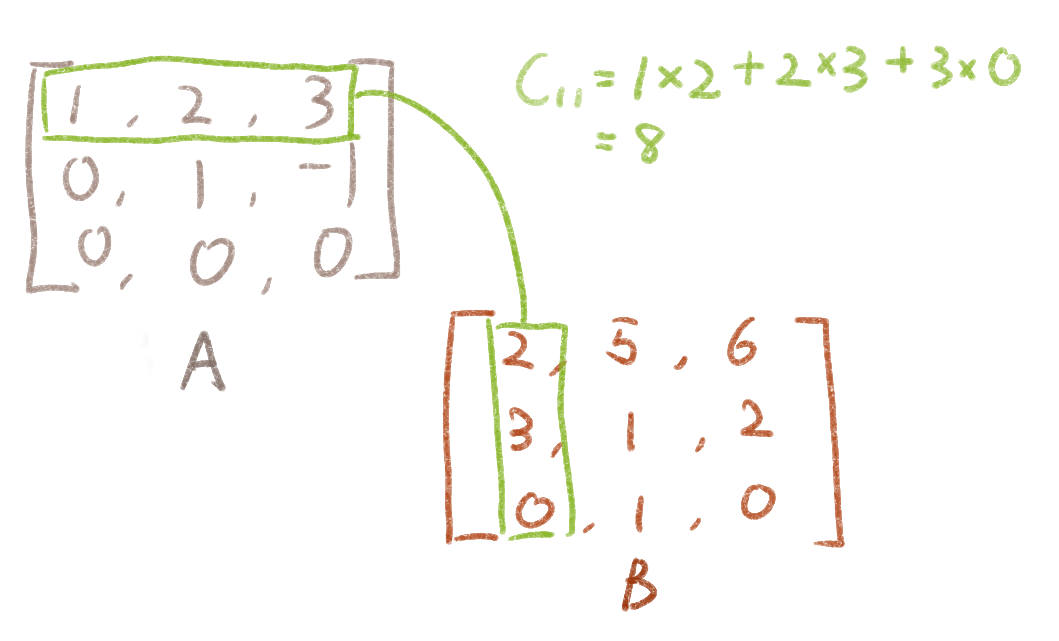 1, 2, 3
0, 1, -1
0, 0, 0
A
C₁₁ = 1×2 + 2×3 + 3×0
= 8
2, 5, 6
3, 1, 2
0, 1, 0
B